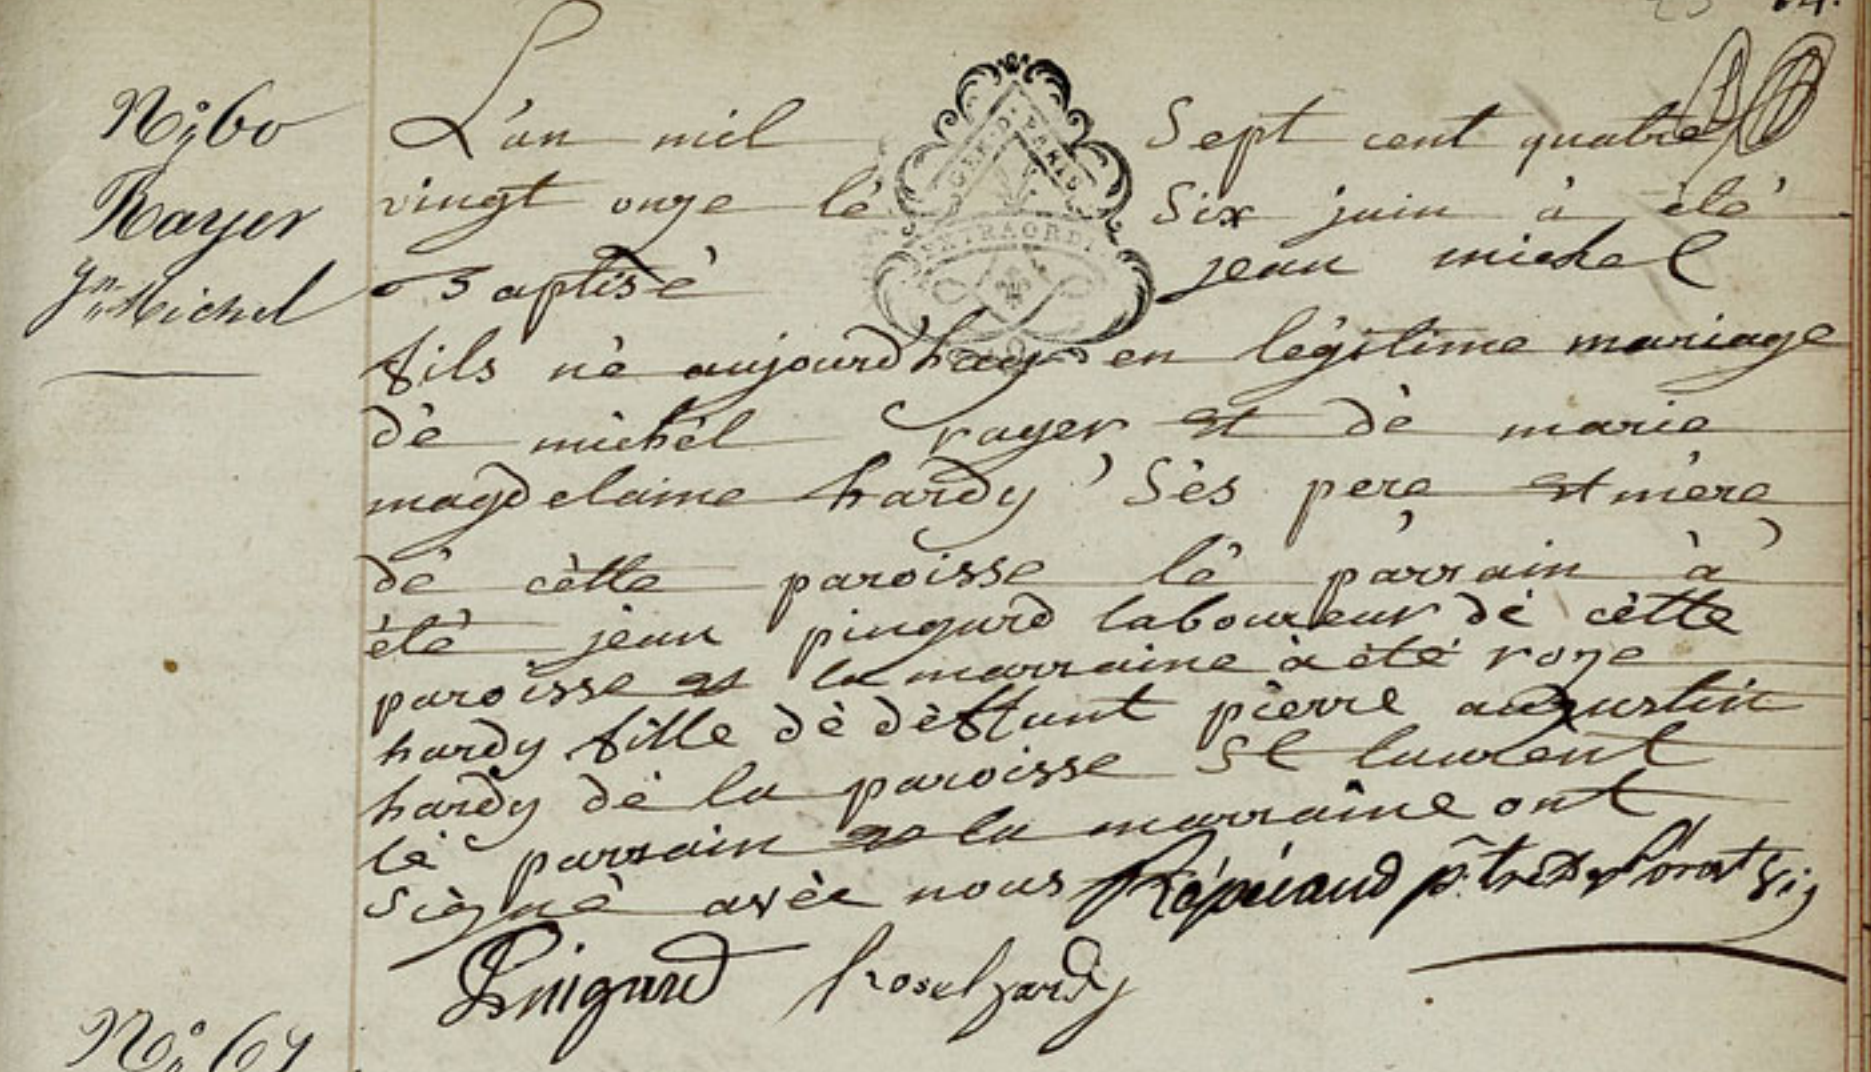 64.
N° 60
Rayer
Jn Michel
L'an mil Sept cent quatre
vingt onze lé Six juin à été
Baptisé jean michel
fils né aujourd'huy en légitime mariage
dé michél rayer et dé marie
magdelaine hardy Sés pere et mère
dé cétte paroisse lé parrain à
été jéan pingard laboureur dé cétte
paroisse et la marraine à été roze
hardy fille dé déffunt pierre augustin
hardy dé la paroisse St laurent
lé parrain et la marraine ont
Signé avéc nous ptre
Pingard Rose hardy
N° 61
GEN. D. PARIS
EXTRAORD.